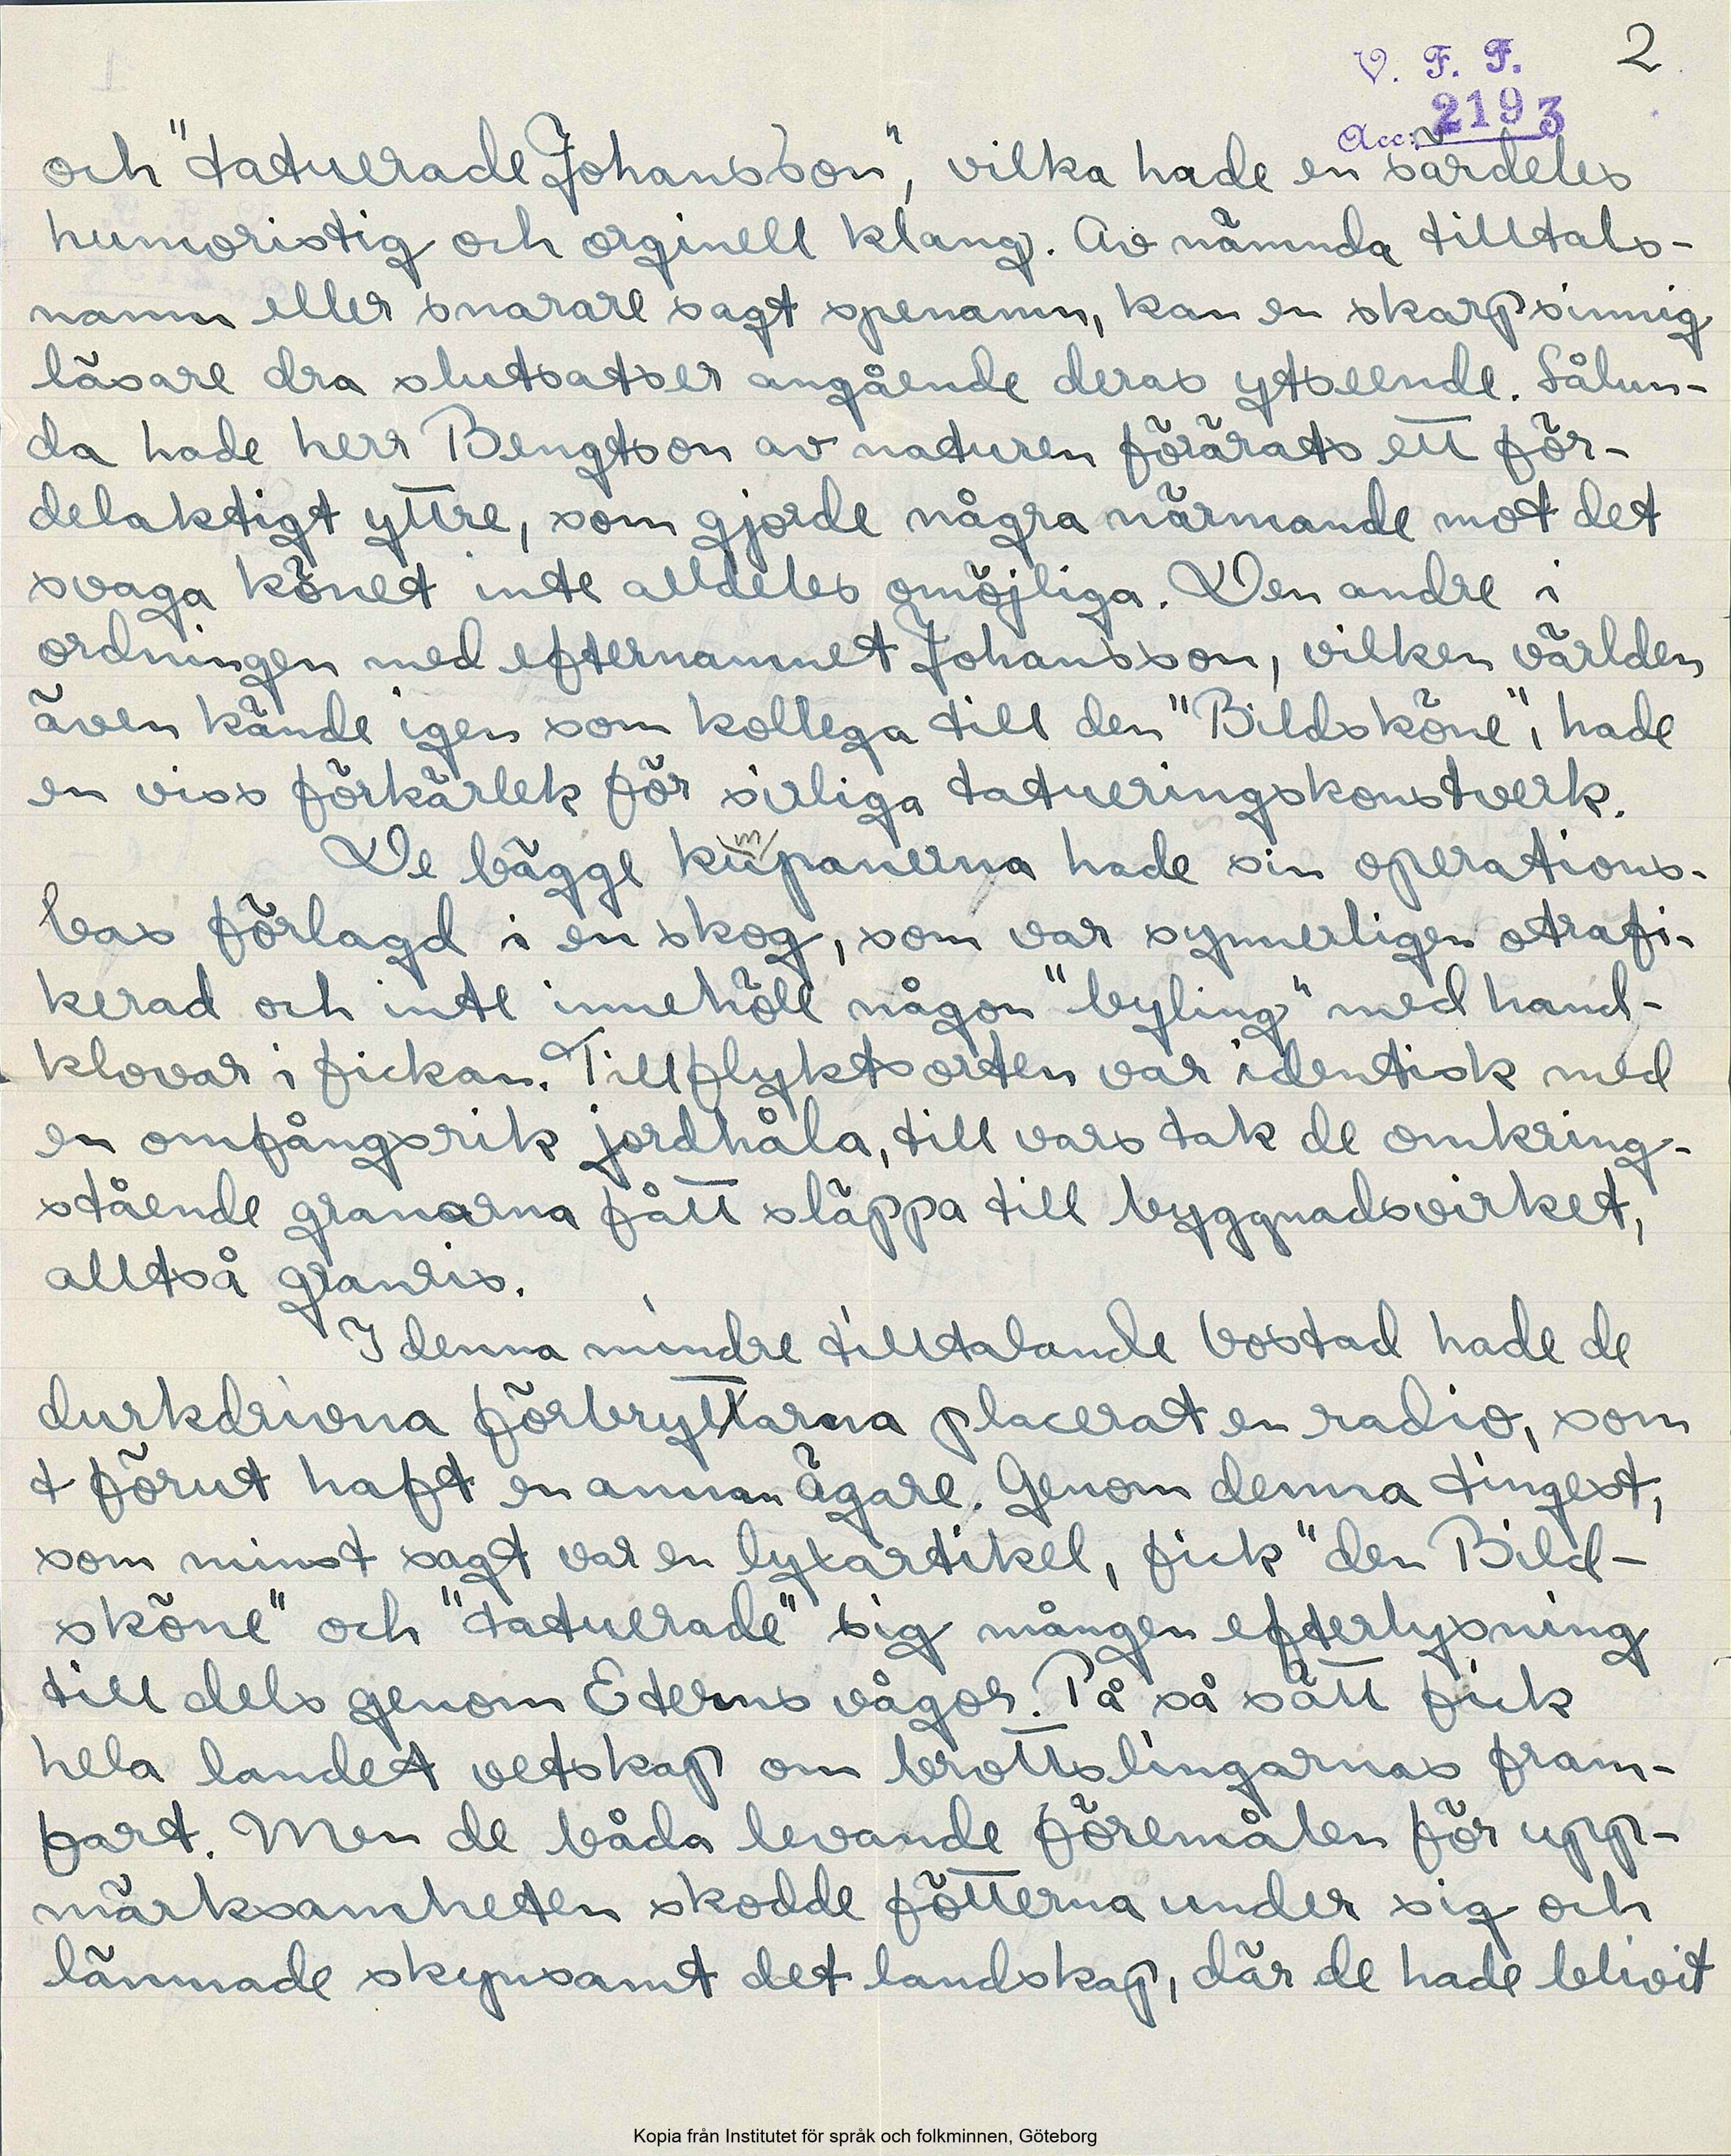 2
V. F. F.
Acc: 2193
och "tatuerade Johansson", vilka hade en särdeles
humoristig och orginell klang. Av nämnda tilltals-
namn eller snarare sagt spenamn, kan en skarpsinnig
läsare dra slutsatser angående deras ytseende. Sålun-
da hade herr Bengtson av naturen förärats ett för-
delaktigt yttre, som gjorde några närmande mot det
svaga könet inte alldeles omöjliga. Den andre i
ordningen med efternamnet Johansson, vilken världen
även kände igen som kollega till den "Bildsköne", hade
en viss förkärlek för sirliga tatueringskonstverk.
De bägge kumpanerna hade sin operations-
bas förlagd i en skog, som var synnerligen otrafi-
kerad och inte innehöll någon "byling" med hand-
klovar i fickan. Tillflyktsorten var identisk med
en omfångsrik jordhåla, till vars tak de omkring-
stående granarna fått släppa till byggnadsvirket,
alltså granris.
I denna mindre tilltalande bostad hade de
durkdrivna förbrytarna placerat en radio, som
förut haft en annan ägare. Genom denna tingest,
som minst sagt var en lyxartikel, fick "den Bild-
sköne" och "tatuerade" sig mången efterlysning
till dels genom Eterns vågor. På så sätt fick
hela landet vetskap om brottslingarnas fram-
fart. Men de båda levande föremålen för upp-
märksamheten skodde fötterna under sig och
lämnade skynsamt det landskap, där de hade blivit
Kopia från Institutet för språk och folkminnen, Göteborg